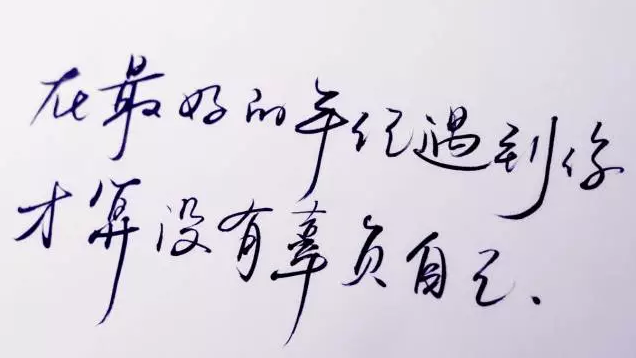 在最好的年纪遇到你
才算没有辜负自己、